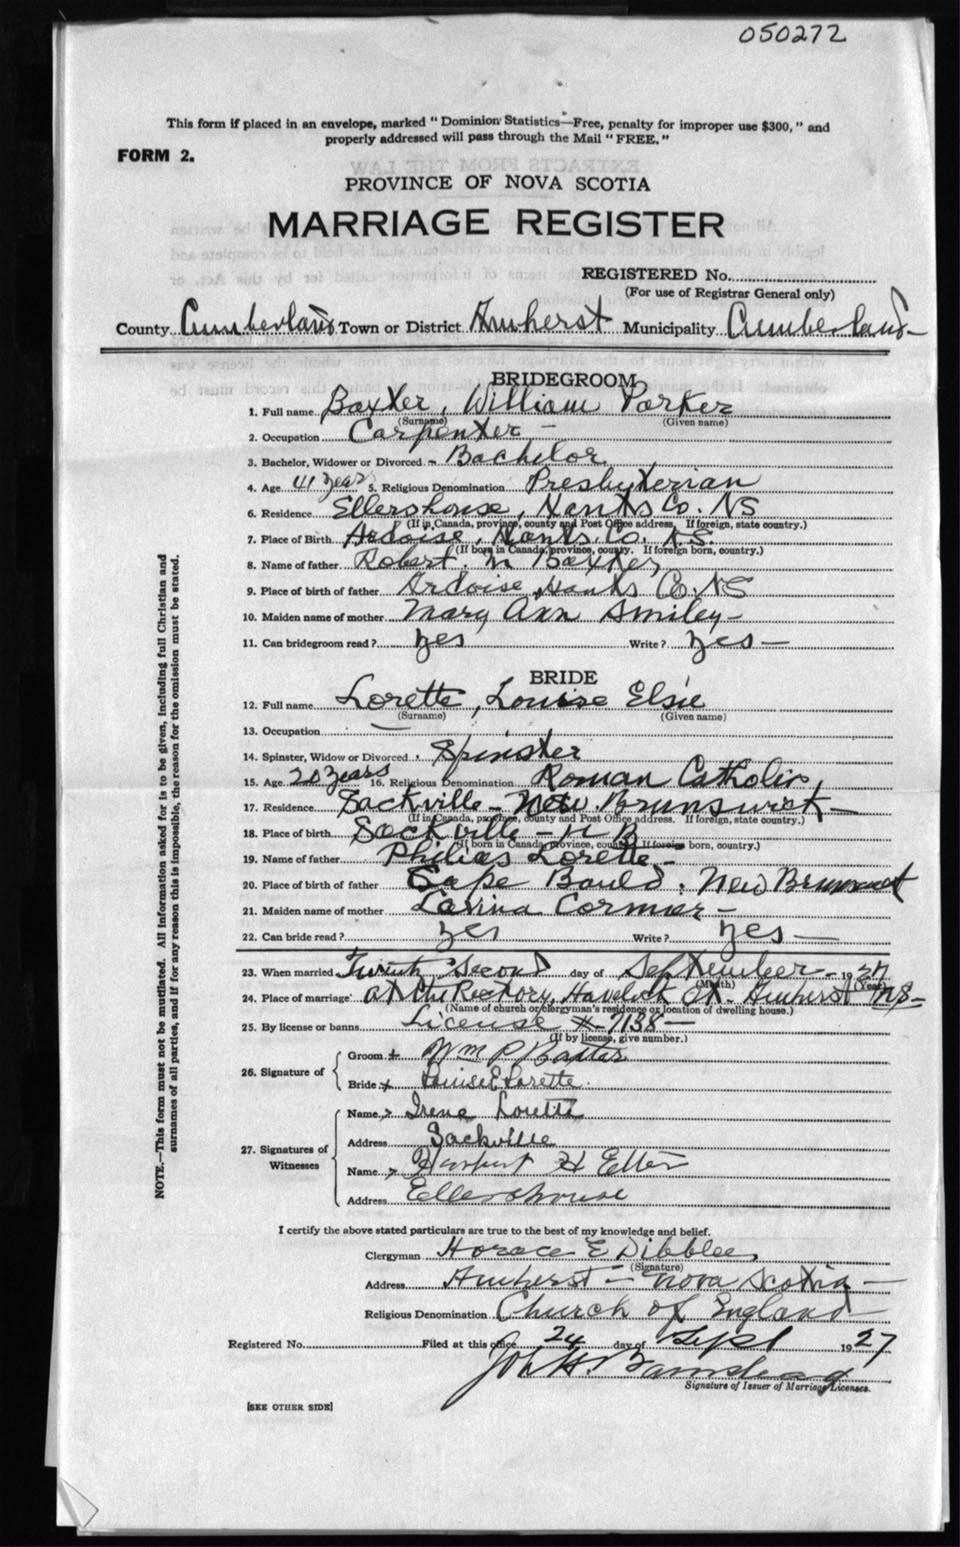 050272
This form if placed in an envelope, marked "Dominion Statistics—Free, penalty for improper use $300," and
properly addressed will pass through the Mail "FREE."
FORM 2.
PROVINCE OF NOVA SCOTIA
MARRIAGE REGISTER
REGISTERED No.
(For use of Registrar General only)
County Cumberland Town or District Amherst Municipality Cumberland
BRIDEGROOM
1. Full name Baxter, William Parker
(Surname) (Given name)
2. Occupation Carpenter -
3. Bachelor, Widower or Divorced - Bachelor
4. Age 41 years 5. Religious Denomination Presbyterian
6. Residence Ellershouse, Hants Co. NS
(If in Canada, province, county and Post Office address. If foreign, state country.)
7. Place of Birth Ardoise, Hants. Co. N.S.
(If born in Canada, province, county. If foreign born, country.)
8. Name of father Robert. M Baxter
9. Place of birth of father Ardoise Hants Co. NS
10. Maiden name of mother Mary Ann Smiley -
11. Can bridegroom read? yes Write? yes -
BRIDE
12. Full name Lorette, Louise Elsie
(Surname) (Given name)
13. Occupation —
14. Spinster, Widow or Divorced. Spinster
15. Age 20 years 16. Religious Denomination Roman Catholic
17. Residence Sackville - New Brunswick -
(If in Canada, province, county and Post Office address. If foreign, state country.)
18. Place of birth Sackville - N B
(If born in Canada, province, county. If foreign born, country.)
19. Name of father Philias Lorette -
20. Place of birth of father Cape Bauld, New Brunswick
21. Maiden name of mother Lavina Cormier -
22. Can bride read? yes Write? yes -
23. When married Twenty Second day of September - 1927
(Month) (Year)
24. Place of marriage at the Rectory, Havelock St. Amherst NS -
(Name of church or clergyman's residence or location of dwelling house.)
25. By license or banns License # 7138 -
(If by license, give number.)
26. Signature of
Groom Wm P Baxter
Bride Louise E Lorette.
27. Signatures of Witnesses
Name Irene Lorette
Address Sackville
Name Herbert H Etter
Address Ellershouse
I certify the above stated particulars are true to the best of my knowledge and belief.
Clergyman Horace E Dibblee,
(Signature)
Address Amherst - Nova Scotia -
Religious Denomination Church of England
Registered No. Filed at this office 24 day of Sept 1927
Signature of Issuer of Marriage Licenses.
[SEE OTHER SIDE]
NOTE.—This form must not be mutilated. All information asked for is to be given, including full Christian and
surnames of all parties, and if for any reason this is impossible, the reason for the omission must be stated.